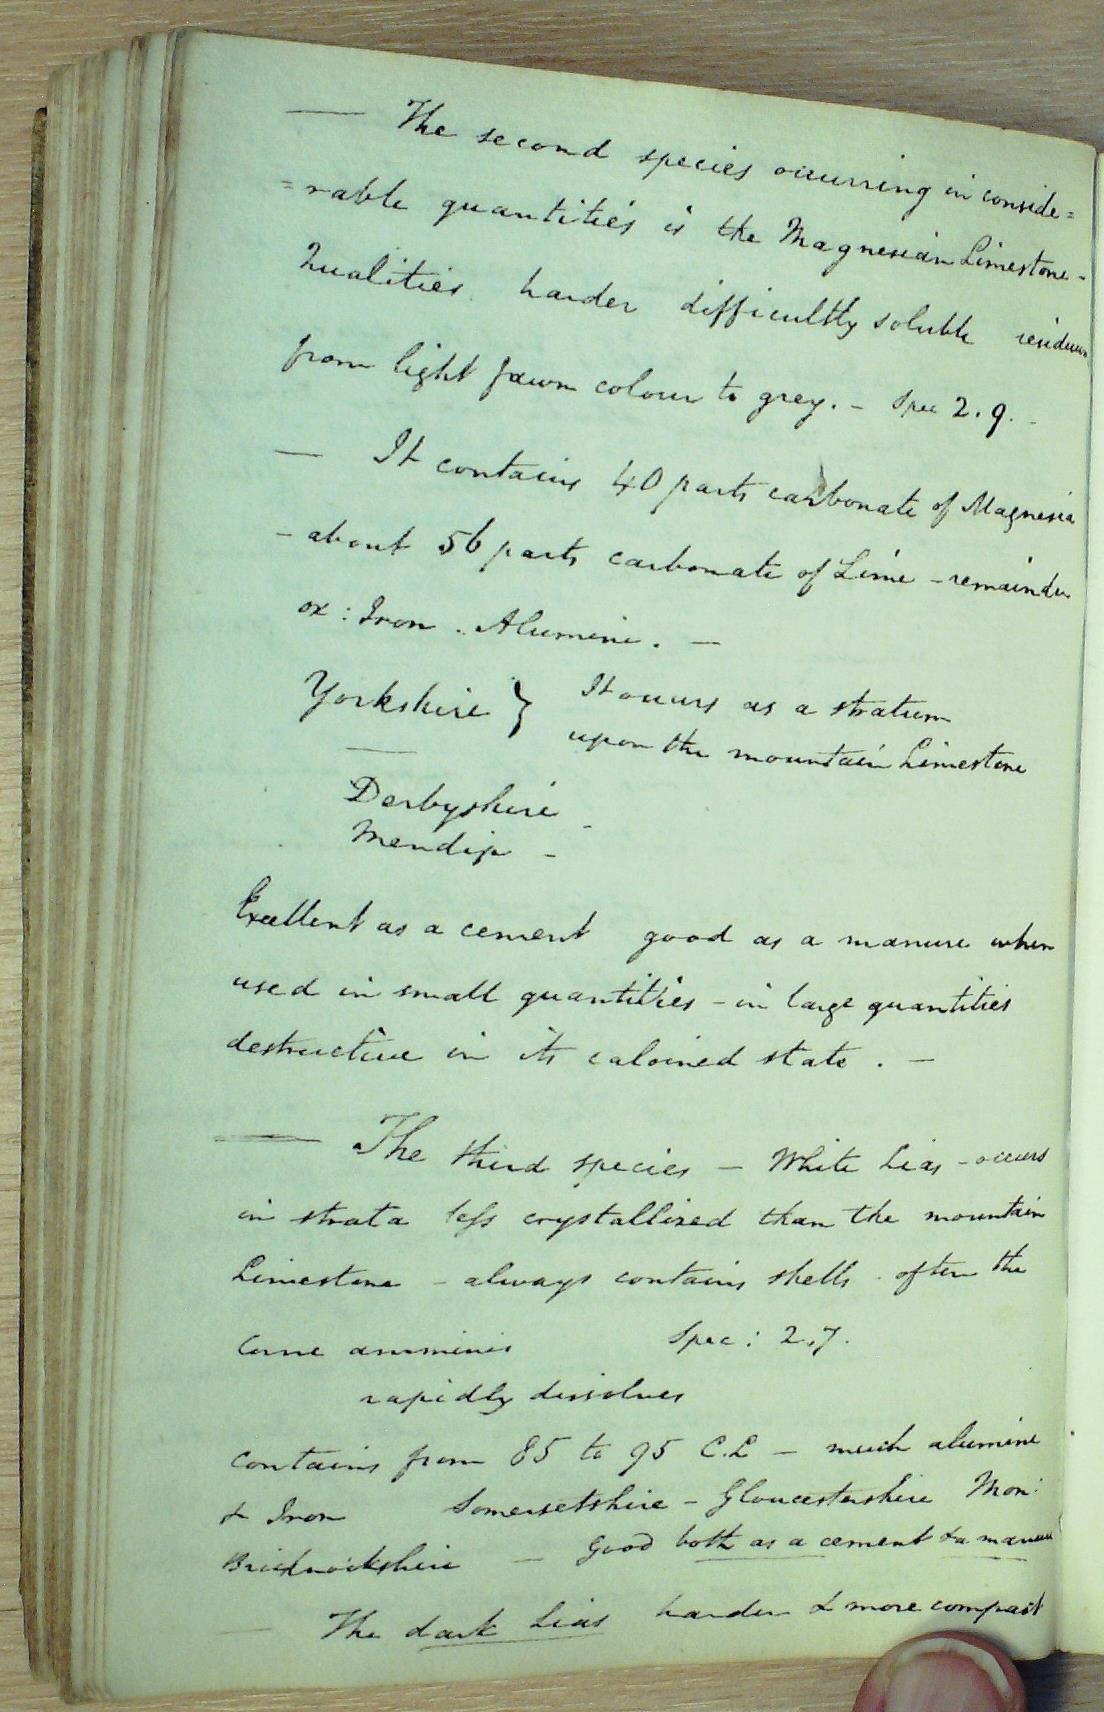 — The second species occurring in conside=
=rable quantities is the Magnesian Limestone -
Qualities harder difficultly soluble residuum
from light fawn colour to grey. - Spec 2.9. -
— It contains 40 parts carbonate of Magnesia
- about 56 parts carbonate of Lime - remainder
ox: Iron. Alumine. —
Yorkshire } It occurs as a stratum
upon the mountain Limestone
Derbyshire -
Mendip -
Excellent as a cement good as a manure when
used in small quantities - in large quantities
destructive in its calcined state. —
— The third species - White Lias - occurs
in strata less crystallized than the mountain
Limestone - always contains shells - often the
Spec: 2.7.
rapidly dissolves
contains from 85 to 95 C.L - much alumine
& Iron Somersetshire - Gloucestershire Mon:
Brecknockshire — Good both as a cement & a manure
— The dark Lias harder & more compact